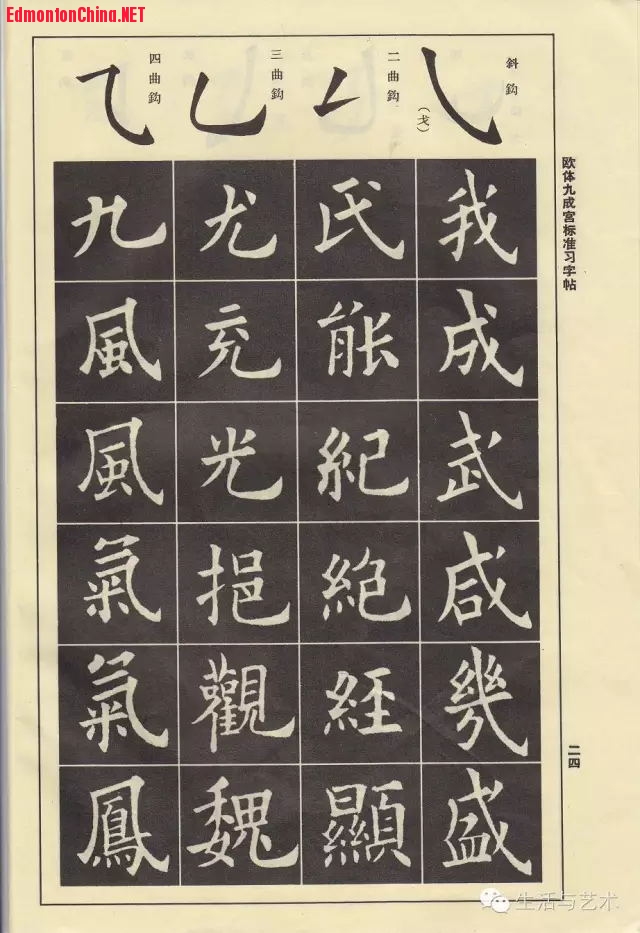 EdmontonChina.NET
欧体九成宫标准习字帖
二四
斜鈎
(戈)
我成武咸幾盛
二曲鈎
氏能紀絶經顯
三曲鈎
尤充光挹觀魏
四曲鈎
九風風氣氣鳳
生活与艺术